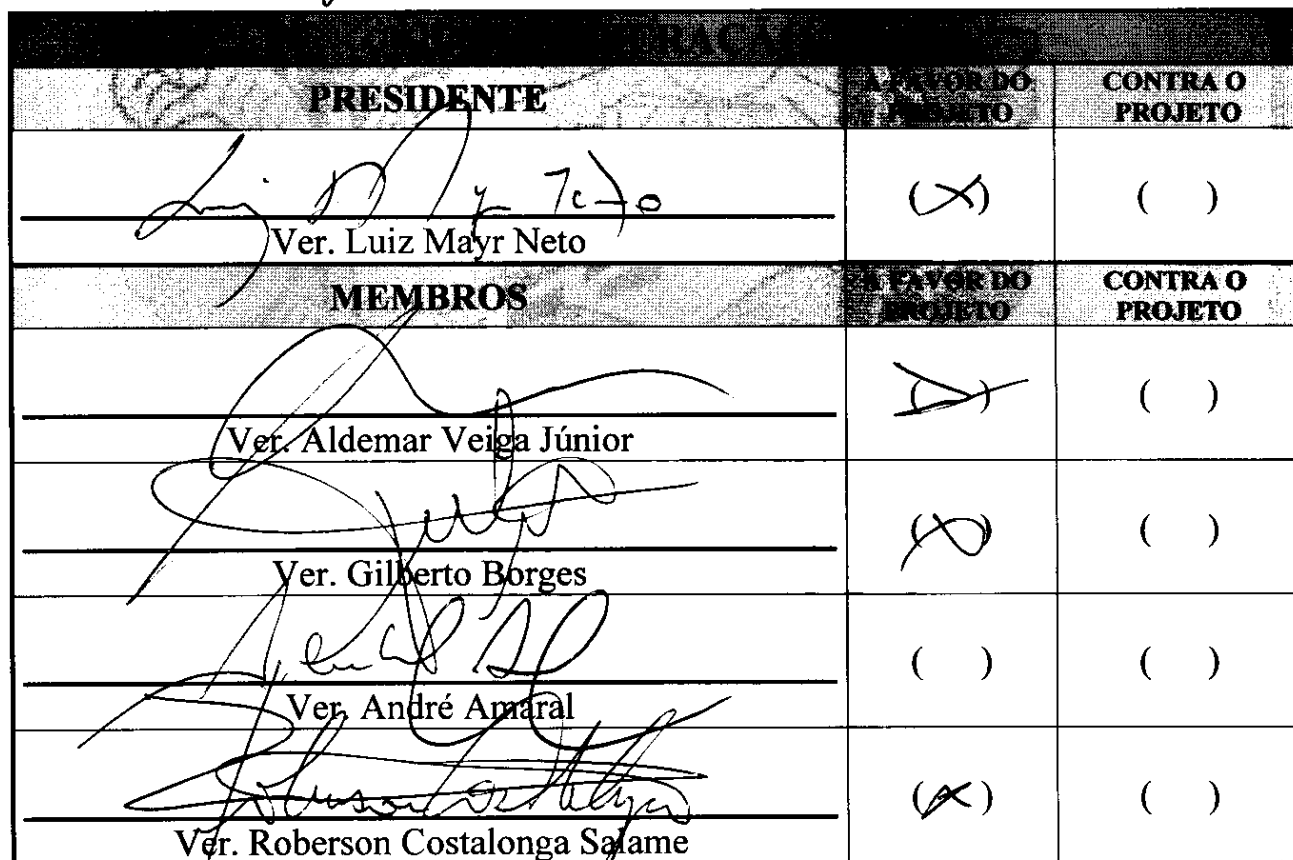 PRESIDENTE
A FAVOR DO PROJETO
CONTRA O PROJETO
(X)
( )
Ver. Luiz Mayr Neto
MEMBROS
A FAVOR DO PROJETO
CONTRA O PROJETO
(X)
( )
Ver. Aldemar Veiga Júnior
(X)
( )
Ver. Gilberto Borges
( )
( )
Ver. André Amaral
(X)
( )
Ver. Roberson Costalonga Salame